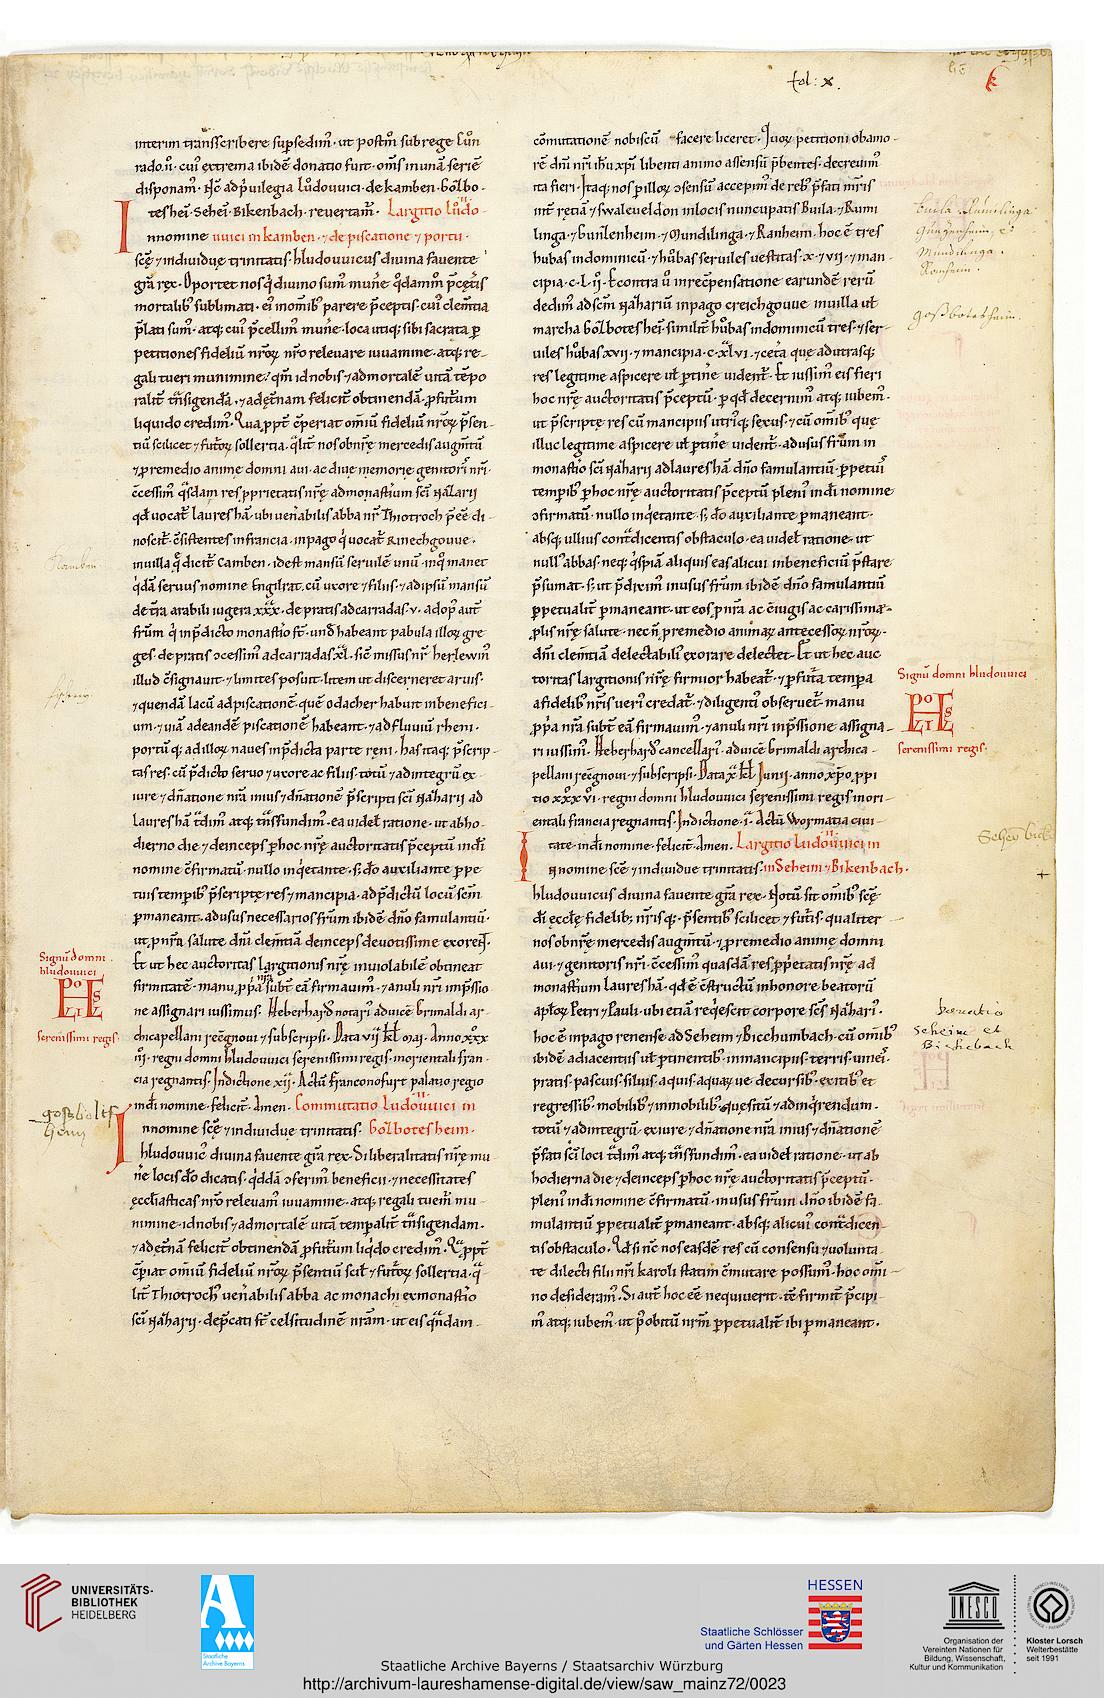 fol: x.
interim transscribere supsedim᷒. ut postm̄ sub rege Lůn
rado.ii. cui᷒ extrema ibidē donatio fuit. om̄s in unā seriē
disponam. H̄c ad p̄uilegia lůdouuici. de kamben. Gőlbo-
tesheī. Seheī. Bikenbach. reuertam᷒. Largitio lůdo-
nnomine uuici in kamben. ⁊ de piscatione ⁊ portu.
scę̄ ⁊ indiuidue trinitatis. hludouuicus diuina fauente
gr̄a rex. Oportet nos q̇ diuino sum᷒ munē q̇dammō p̄ cęt̄is
mortalib᷒ sublimati. ei᷒ in om̄ib᷒ parere p̄ceptis. cui᷒ clem̄tia
p̄lati sum᷒. atq; cui᷒ p̄cellim᷒ munē. loca utiq; sibi sacrata ꝑ
petitiones fideliū nr̄oꝝ nr̄o releuare iuuamine. atq; re-
gali tueri munimine. qm̄ id nobis ⁊ ad mortalē uitā tēpo
ralit̄ tn̄sigendā. ⁊ ad ęt̄nam felicit̄ obtinendā. ꝓfut̄um
liquido credim᷒. Qua ꝓpt̄ c̄periat om̄iū fideliū nr̄oꝝ p̄sen-
tiū scilicet ⁊ futoꝝ sollertia. q̇lit̄ nos ob nr̄ę mercedis augm̄tū
⁊ ꝓ remedio anime domni aui. ac diue memorię genitoris nr̄i.
c̄cessim᷒ q̇sdam res ꝓprietatis nr̄ę ad monast̄ium sc̄i Nazarii
qd̄ uocat᷒ lauresha᷒. ubi uen̄abilis abba nr̄ Thiotroch p̄ee᷒ di-
noscit᷒. c̄sistentes in francia. in pago q̇ uocat᷒ Rinechgouue.
in uilla q̄ dicit᷒ Camben. id est mansū seruilē unū. in q̇ manet
q̇dā seruus nomine Engilrat. cū uxore ⁊ filiis. ⁊ ad ipsū mansū
de t̄ra arabili iugera xxx. de pratis ad carradas. v. ad op᷒ aut̄
fr̄um q̇ in p̄dicto monast̄io st̄. und̄ habeant pabula illoꝝ gre
ges. de pratis ɔcessim᷒ ad carradas. xl. sic̄ missus nr̄ herlewin᷒
illud c̄signauit. ⁊ limites posuit. Item ut discerneret aruis.
⁊ quendā lacū ad piscationē. quē odacher habuit in benefici-
um. ⁊ uiā ad eandē piscationē habeant. ⁊ ad fluuiū rheni.
portū q; ad illoꝝ naues in p̄dicta parte reni. has itaq; p̄scrip-
tas res. cū p̄dicto seruo ⁊ uxore ac filiis. totū ⁊ ad integrū ex
iure ⁊ dn̄atione nr̄a in ius ⁊ dn̄ationē p̄scripti sc̄i Nazarii ad
lauresha᷒ t̄dim᷒ atq; tn̄sfundim᷒. ea uidel᷒ ratione. ut ab ho-
dierno die ⁊ deinceps ꝑ hoc nr̄ę auctoritatis p̄ceptū in dī
nomine c̄firmatū. nullo inq̇etante. s; dō auxiliante ꝑpe
tuis temporib᷒ p̄scriptę res ⁊ mancipia. ad p̄dictū locū sem̄
ꝑmaneant. ad usus necessarios fr̄um ibidē dn̄o famulantiū.
ut ꝓ nr̄a salute dn̄i clem̄tiā deinceps deuotissime exorent᷒.
Et ut hec auctoritas largitionis nr̄ę inuiolabilē obtineat
firmitatē. manu ꝓp̄a nr̄a subt᷒ eā firmauim᷒. ⁊ anuli nr̄i imp̄ssio
ne assignari iussimus. Heberhard᷒ notari᷒ ad uicē Grimaldi ar-
chicapellani recognoui ⁊ subscripsi. Data vii kl̄ mai. Anno xxx
iii. regni domni hludouuici serenissimi regis. in orientali fran-
cia regnantis. Indictione xii. Actū franconofurt palatio regio
in dī nomine. felicit̄. Amen. Commutatio Ludouuici in
nnomine scę̄ ⁊ indiuidue trinitatis. Gőlbotesheim.
hludouuic᷒ diuina fauente gr̄a rex. Si liberalitatis nr̄ę mu
nē locis dō dicatis. q̇ddā ɔferim᷒ beneficii. ⁊ necessitates
ęcclīasticas nr̄o releuam᷒ iuuamine. atq; regali tuem᷒ mu-
nimine. id nobis ⁊ ad mortalē uitā temp̄alit̄ tn̄sigendam.
⁊ ad ęt̄nā felicit̄ obtinendā ꝓfut̄um liq̇do credim᷒. Qa ꝓpt̄
c̄ꝑiat om̄iū fideliū nr̄oꝝ p̄sentiū scil᷒ ⁊ futoꝝ sollertia. q̇
lit̄ Thiotroch᷒ uen̄abilis abba ac monachi ex monast̄io
sc̄i Nazarii. dep̄cati st̄ celsitudinē nr̄am. ut eis q̇ndam
cōmutationē nobiscū facere liceret. Quoꝝ petitioni ob amo-
rē dn̄i nr̄i ihū xp̄i libenti animo assensū p̄bentes. decreuim᷒
ita fieri. Itaq; nos ꝑ illoꝝ ɔsensū accepim᷒ de reb᷒ p̄fati mr̄is
int̄ retiā ⁊ swaleueldon in locis nuncupatis Buila. ⁊ Rumi
linga. ⁊ Gunzenheim. ⁊ Mundilinga. ⁊ Ranheim. hoc ē tres
hubas indominicū. ⁊ hůbas seruiles uestitas. x. ⁊ vii. ⁊ man-
cipia. c. L. ii. E contra u̇ in recōpensatione earundē rerū
dedim᷒ ad sc̄m Nazariū in pago creichgouue. in uilla ul᷒
marcha Gőlbotesheī. similit̄ hůbas indominicū tres. ⁊ ser-
uiles hůbas xvii. ⁊ mancipia. c. xlvi. ⁊ cet̄a quę ad utrasq;
res legitime aspicere ul᷒ ptinē uident᷒. Et iussim᷒ eis fieri
hoc nr̄ę auctoritatis p̄ceptū. ꝑ qd̄ decernim᷒ atq; iubem᷒.
ut p̄scriptę res cū mancipiis utriq; sexus. ⁊ cū om̄ib᷒ quę
illuc legitime aspicere ul᷒ ptinē uident᷒. ad usus fr̄um in
monast̄io sc̄i Nazarii ad laureshā dn̄o famulantiū. ꝑpetui᷒
temporib᷒ ꝑ hoc nr̄ę auctoritatis p̄ceptū plen᷒ in dī nomine
ɔfirmatū. nullo inq̇etante. s; dō auxiliante ꝑmaneant.
absq; ullius contᵃdicentis obstaculo. ea uidel᷒ ratione. ut
null᷒ abbas. neq; q̇spiā aliquis eas alicui in beneficiū p̄stare
p̄sumat. s; ut p̄dixim᷒ in usus fr̄um ibidē dn̄o famulantiū
ꝑpetualit̄ ꝑmaneant. ut eos ꝓ nr̄a ac c̄iugis ac carissimę
ꝓlis nr̄ę salute. nec ñ ꝓ remedio animaꝝ antecessoꝝ nr̄oꝝ.
dn̄i clem̄tiā delectabili᷒ exorare delectet. Et ut hec auc
toritas largitionis nr̄ę firmior habeat᷒. ⁊ ꝑ fut̄a tempa
a fidelib᷒ nr̄is ueri᷒ credat᷒. ⁊ diligenti᷒ obseruet᷒. manu
ꝓp̄a nr̄a subt᷒ eā firmauim᷒. ⁊ anuli nr̄i imp̄ssione assigna-
ri iussim᷒. Heberhard᷒ cancellari᷒. ad uicē Grimaldi archica-
pellani recognoui. ⁊ subscripsi. Data x kl̄ Junii. anno xp̄o ꝓpi
tio xxxvi. regni domni hludouuici serenissimi regis in ori-
entali francia regnantis. Indictione. i. Actū Wormatia ciui-
tate. in dī nomine. felicit̄. Amen. Largitio Ludouuici in
nnomine scę̄ ⁊ indiuidue trinitatis. in Seheim ⁊ Bikenbach.
hludouuicus diuina fauente gr̄a rex. Notū sit om̄ib᷒ scę̄
dī ęccl̄ę fidelib᷒. nr̄isq; p̄sentib᷒ scilicet ⁊ fut̄is. qualiter
nos ob nr̄ę mercedis augm̄tū. ⁊ ꝓ remedio animę domni
aui. ⁊ genitoris nr̄i. c̄cessim᷒ quasdā res ꝓp̄etatis nr̄ę ad
monast̄ium laureshā. qd̄ ē c̄structū in honore beatorū
apl̄oꝝ Petri ⁊ Pauli. ubi etiā req̇escit corpore sc̄s Nazari᷒.
hoc ē in pago renense ad Seheim ⁊ Bicchumbach. cū om̄ib᷒
ibidē adiacentiis ul᷒ ptinentib᷒. in mancipiis. terris. uineis.
pratis. pascuis. siluis. aquis aquaꝝ ue decursib᷒. exitib᷒ et
regressib᷒. mobilib᷒ ⁊ inmobilib᷒. quęsitū ⁊ ad inq̇rendum.
totū ⁊ ad integrū. ex iure ⁊ dn̄atione nr̄a in ius ⁊ dn̄ationē
p̄fati sc̄i loci t̄dim᷒ atq; tn̄sfundim᷒. ea uidel᷒ ratione. ut ab
hodierna die ⁊ deinceps ꝑ hoc nr̄ę auctoritatis p̄ceptū.
pleni᷒ in dī nomine c̄firmatū. in usus fr̄um dn̄o ibidē fa
mulantiū ꝑpetualit̄ ꝑmaneant. absq; alicui᷒ contᵃdicen
tis obstaculo. Qd̄ si nc̄ nos easdē res cū consensu ⁊ uolunta
te dilecti filii nr̄i karoli statim c̄mutare possum᷒. hoc om̄i
no desideram᷒. Si aut̄ hoc ēē nequiuerit. tc̄ firmit̄ p̄cipi
m᷒ atq; iubem᷒. ut p᷒ obitū nr̄m ꝑpetualit̄ ibi ꝑmaneant.
Kamben
Signū domni
hludouuici
serenissimi regis.
Buila. Rumilinga
Gunzenheim, et
Mundilinga.
Ranheim.
Signū domni hludouuici
serenissimi regis.
donatio
Seheim et
Bickebach
UNIVERSITÄTS-
BIBLIOTHEK
HEIDELBERG
Staatliche
Archive Bayerns
HESSEN
Staatliche Schlösser
und Gärten Hessen
UNESCO
Organisation der
Vereinten Nationen für
Bildung, Wissenschaft,
Kultur und Kommunikation
Kloster Lorsch
Welterbestätte
seit 1991
Staatliche Archive Bayerns / Staatsarchiv Würzburg
http://archivum-laureshamense-digital.de/view/saw_mainz72/0023